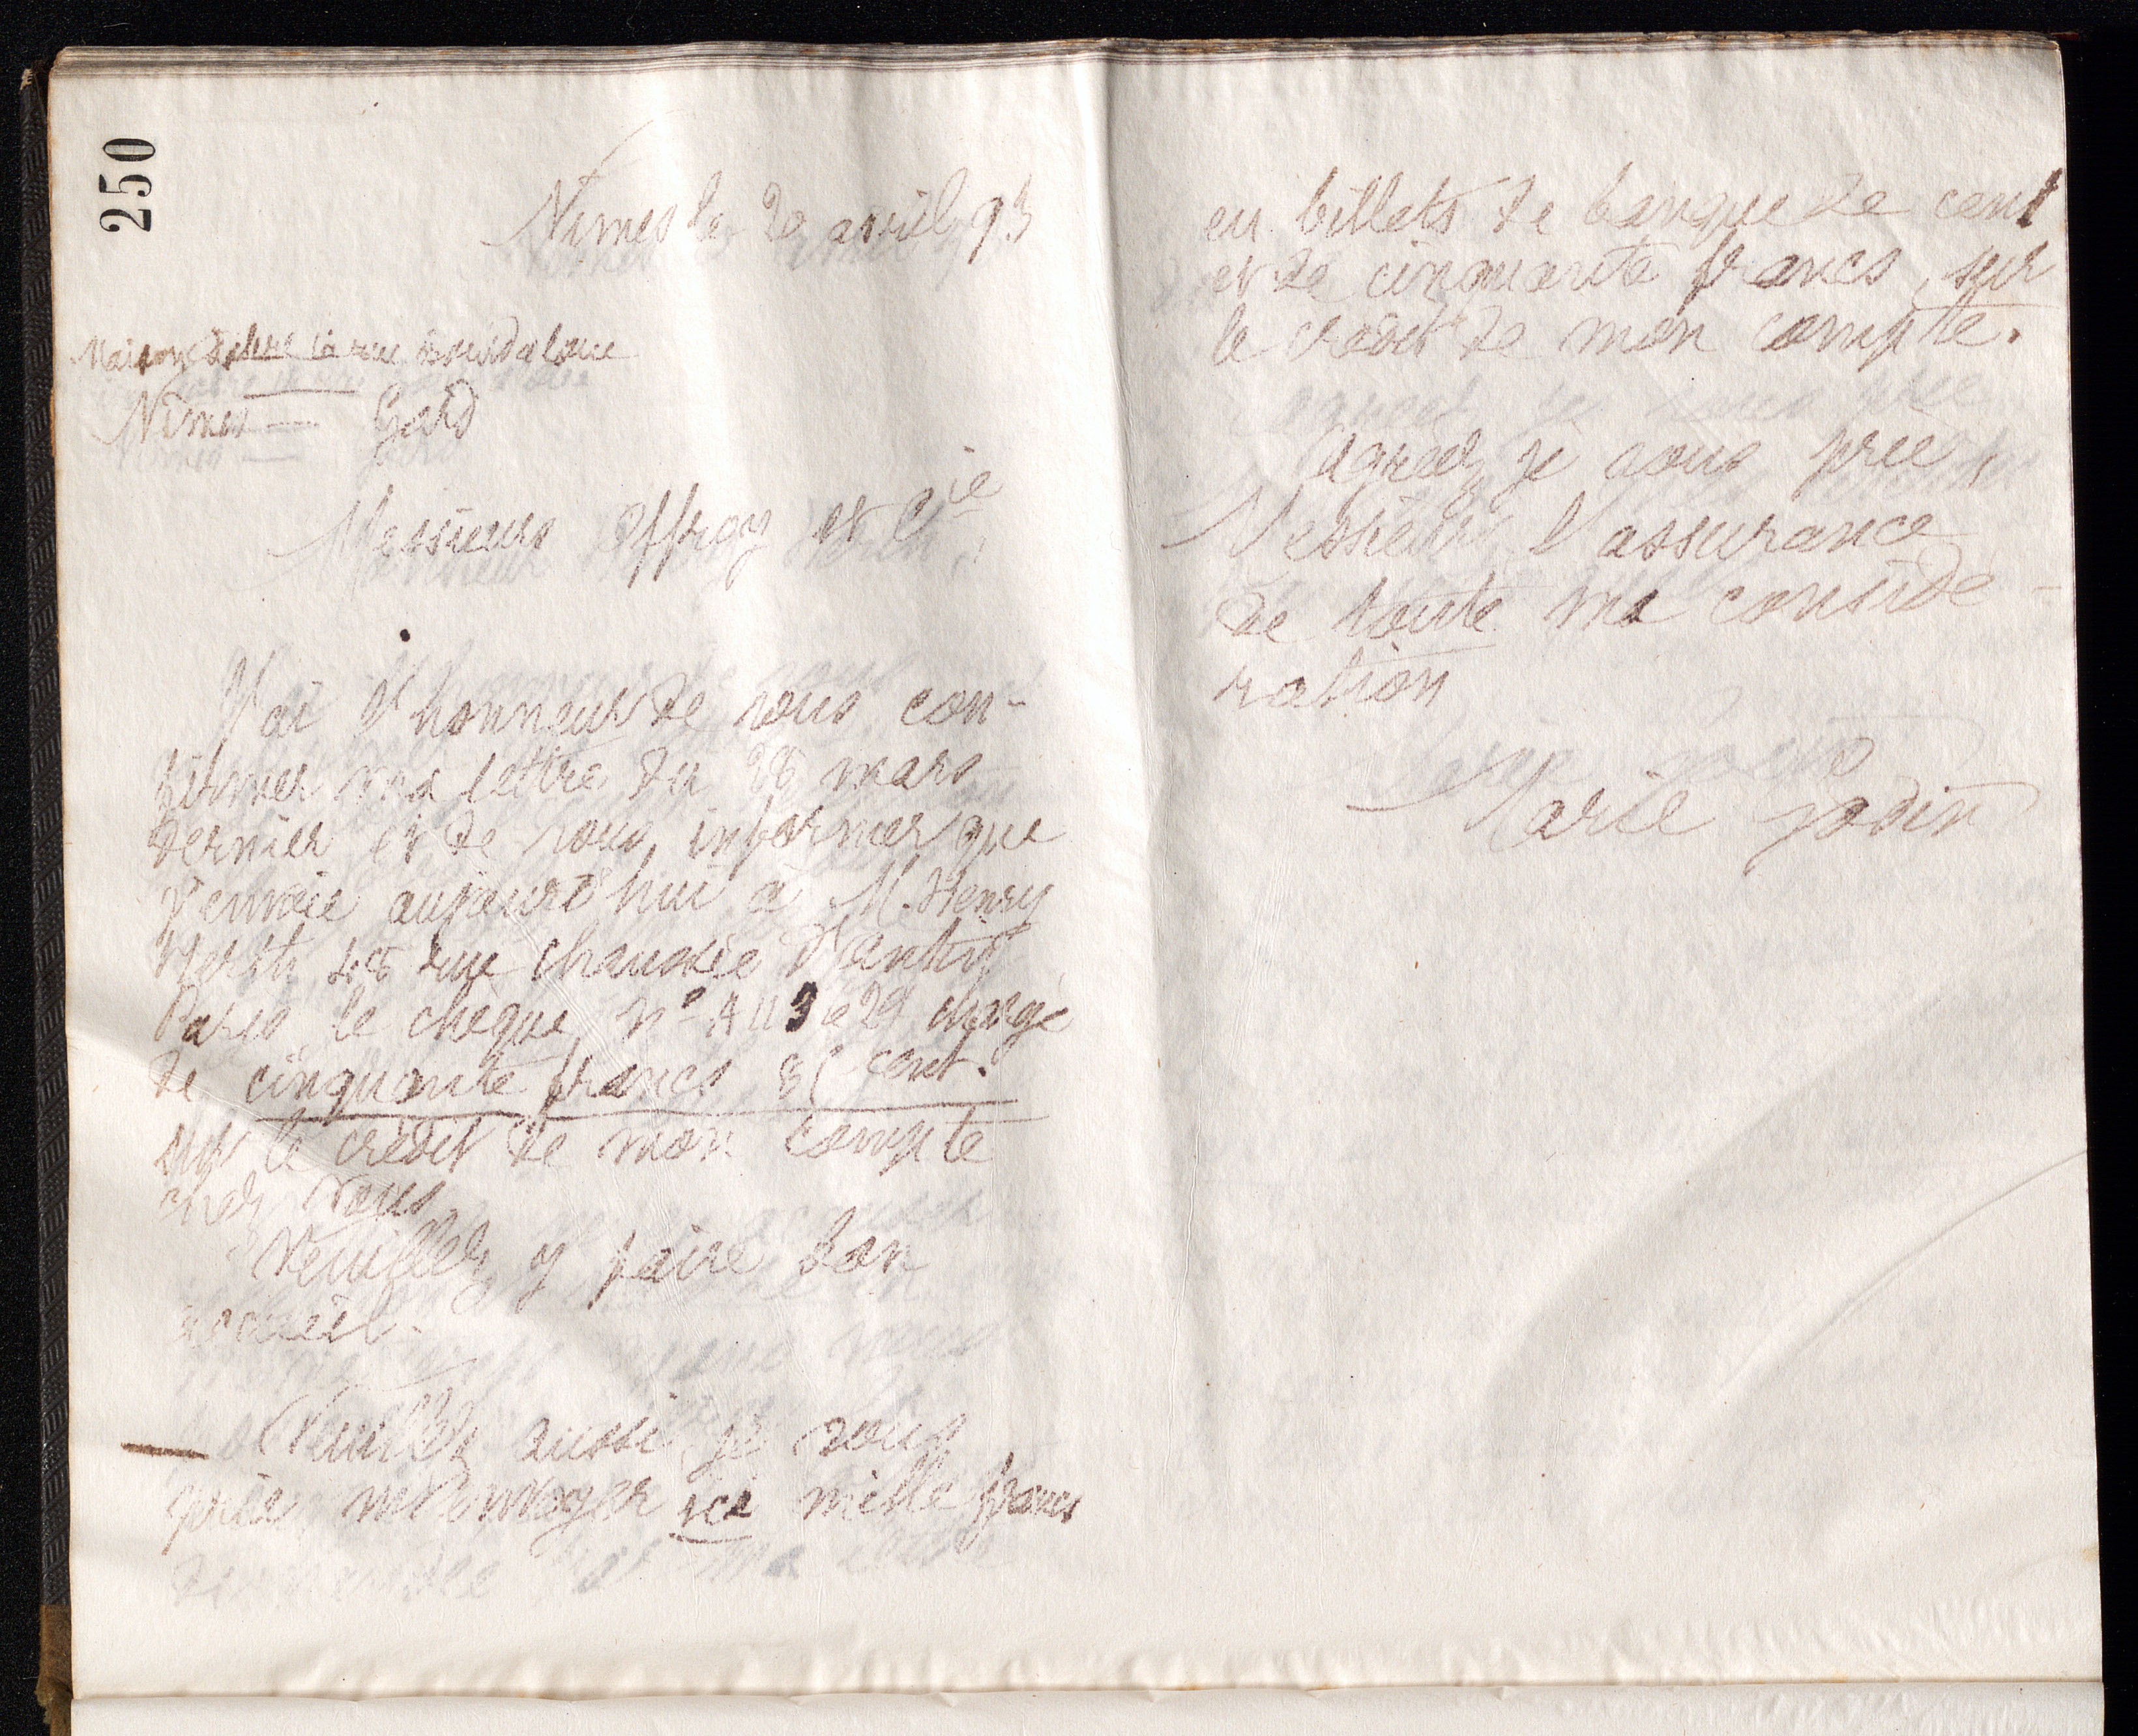 250
Nimes le 20 avril 93
Maison rue Bourdaloue
Nimes — Gard
Messieurs Offroy et Cie
J'ai l'honneur de vous con-
firmer ma lettre du 28 mars
dernier et de vous informer que
j'envoie aujourd'hui à M. Henry
48 rue chaussée d'antin
Paris le chèque n°
de cinquante francs cent.
sur le crédit de mon compte
chez vous.
Veuillez y faire bon
accueil.
Veuillez aussi je vous
prie m'envoyer ici mille francs
en billets de banque de cent
et de cinquante francs, sur
le crédit de mon compte.
Agréez je vous prie,
Messieurs, l'assurance
de toute ma considé-
ration
Marie Godin